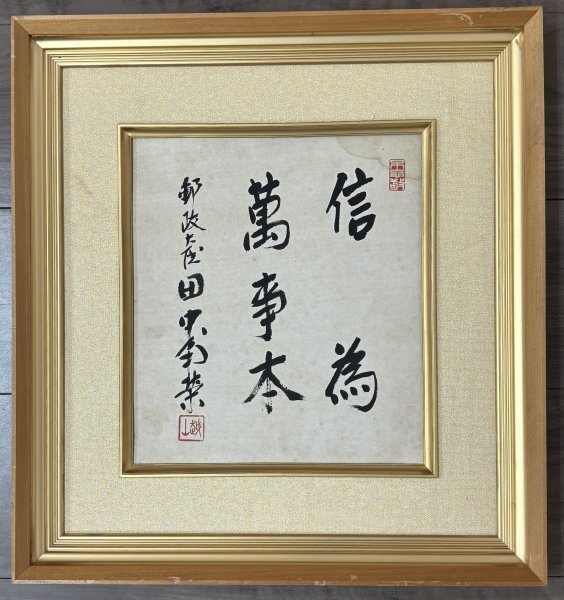 信為
萬事本
郵政大臣田中角榮
越山